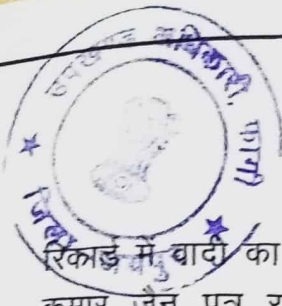 उपखण्ड अधिकारी, फागी
जिला जयपुर
रिकार्ड में वादी का
कुमार जैन पुत्र